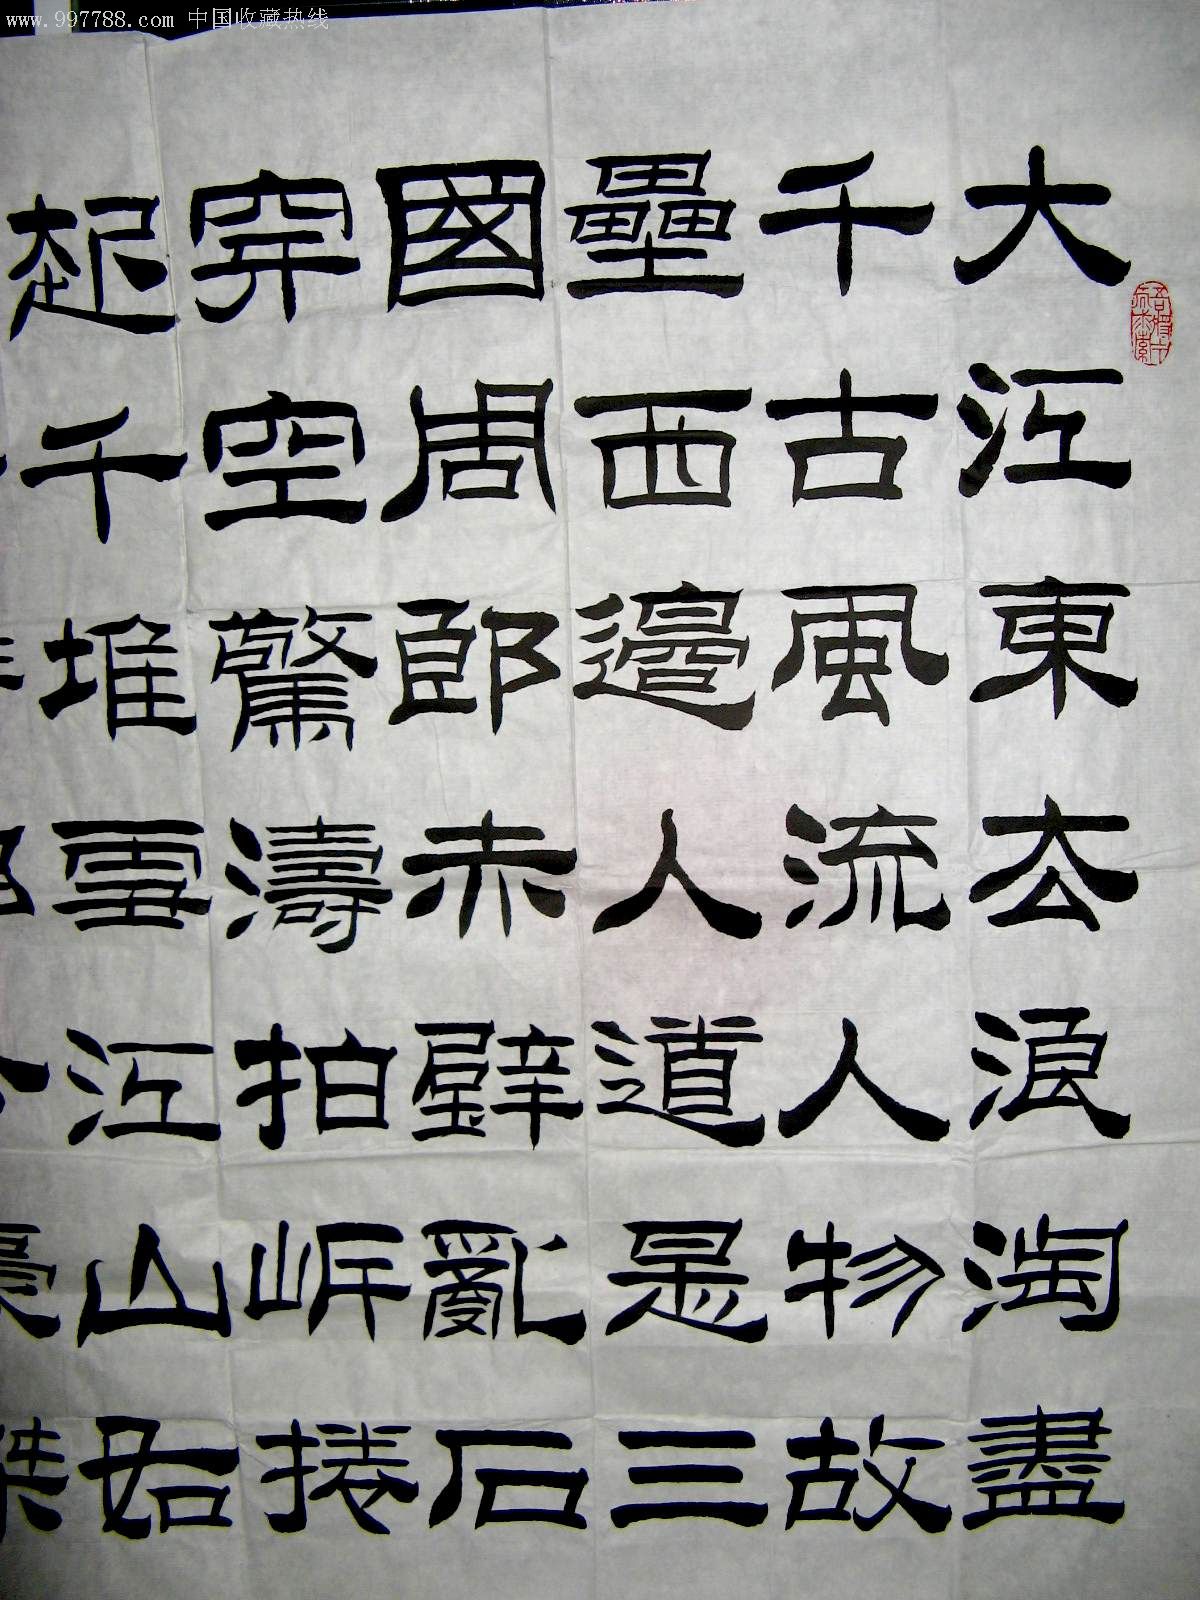 www.997788.com 中国收藏热线
大江東去浪淘盡
千古風流人物故
壘西邊人道是三
國周郎赤壁亂石
穿空驚濤拍岸捲
起千堆雪江山如